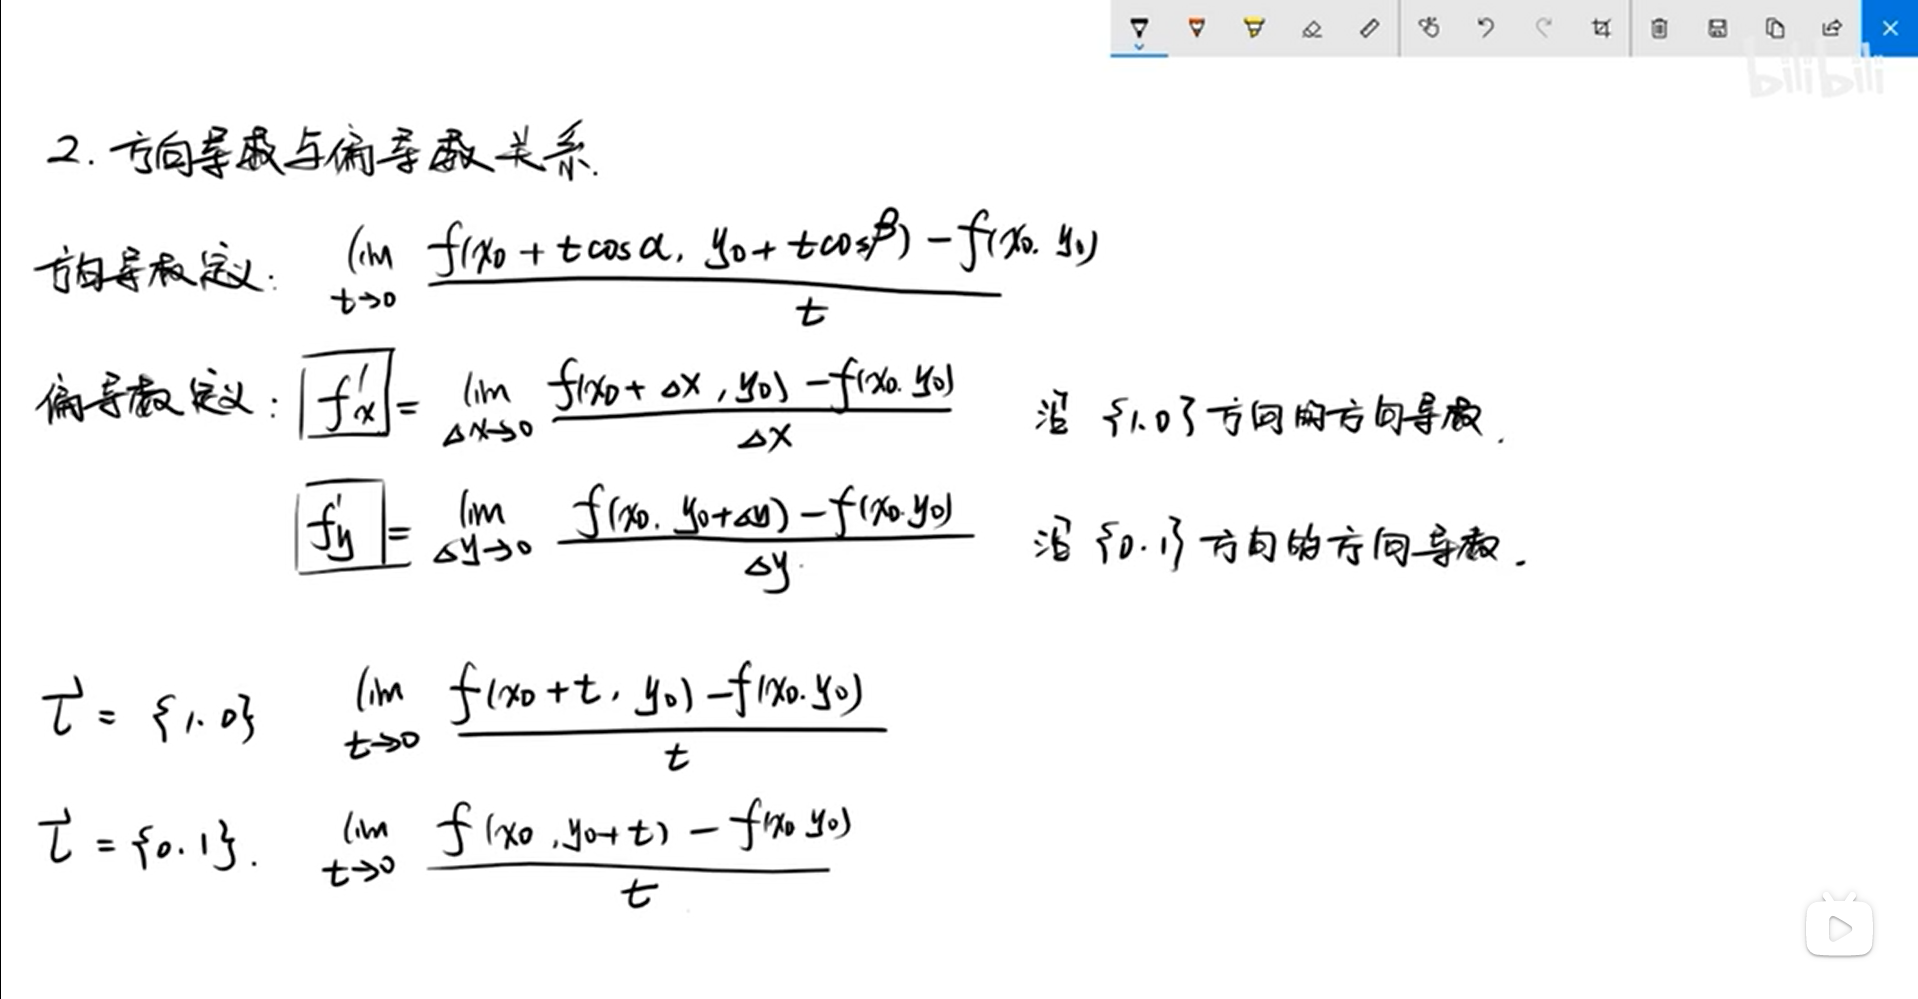 bilibili
2. 方向导数与偏导数关系.
方向导数定义: lim t→0 f(x0 + tcosα, y0 + tcosβ) - f(x0, y0) / t
偏导数定义: f'x = lim Δx→0 f(x0 + Δx, y0) - f(x0, y0) / Δx 沿 {1, 0} 方向的方向导数.
f'y = lim Δy→0 f(x0, y0+Δy) - f(x0, y0) / Δy 沿 {0, 1} 方向的方向导数.
l = {1, 0} lim t→0 f(x0 + t, y0) - f(x0, y0) / t
l = {0, 1}. lim t→0 f(x0, y0 + t) - f(x0, y0) / t